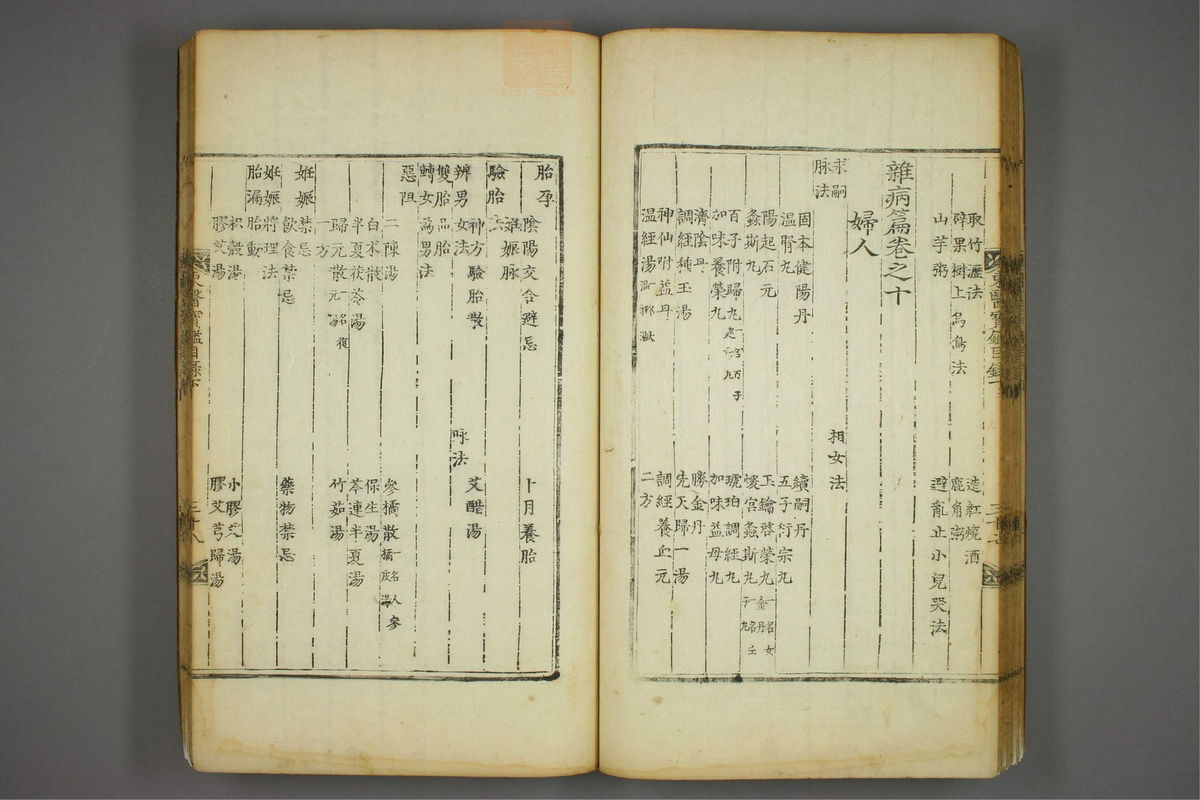 取竹瀝法　造紅燒酒
碎果樹上烏鳥法　鹿角粥
山芋粥　避亂止小兒哭法
雜病篇卷之十
婦人
求嗣
脉法　相女法
固本健陽丹　續嗣丹
溫腎丸　五子衍宗丸
陽起石元　玉鑰啓榮丸一名女金丹
螽斯丸　煖宮螽斯丸一名壬子丸
百子附歸丸　琥珀調經丸
加味養榮丸　加味益母丸
濟陰丹　勝金丹
調經種玉湯　先天歸一湯
神仙附益丹　調經養血元
溫經湯　二方
東醫寶鑑目錄下
胎孕
陰陽交合避忌　十月養胎
姙娠脉
驗胎
神方驗胎散　艾醋湯
辨男女法　脉法
雙胎品胎
轉女爲男法
惡阻
二陳湯　參橘散一名人參橘皮湯
白朮散　保生湯
半夏茯苓湯　芩連半夏湯
歸元散　竹茹湯
一方
姙娠禁忌
飮食禁忌　藥物禁忌
姙娠將理法
胎漏胎動
枳殼湯　小膠艾湯
膠艾湯　膠艾芎歸湯
三十八